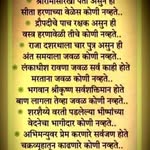 श्रीरामासारखा पती असुन ही
सीता हरणाच्या वेळेस कोणी नव्हते..
द्रौपदीचे पाच रक्षक असुन ही
वस्त्र हरणावेळी तीचे कोणी नव्हते..
राजा दशरथाला चार पुत्र असुन ही
अंत समयाला जवळ कोणी नव्हते..
लंकाधीश रावणा जवळ सर्व काही होते
मरताना जवळ कोणी नव्हते..
भगवान श्रीकृष्ण सर्वशक्तिमान होते
बाण लागला तेव्हा जवळ कोणी नव्हते..
शरशैय्ये वरती पडलेल्या भीष्मांच्या
वेदनेचा भागीदार कोणी नव्हते..
अभिमन्युवर प्रेम करणारे सर्वजण होते
चक्रव्यूहातून काढणारे कोणी नव्हते..